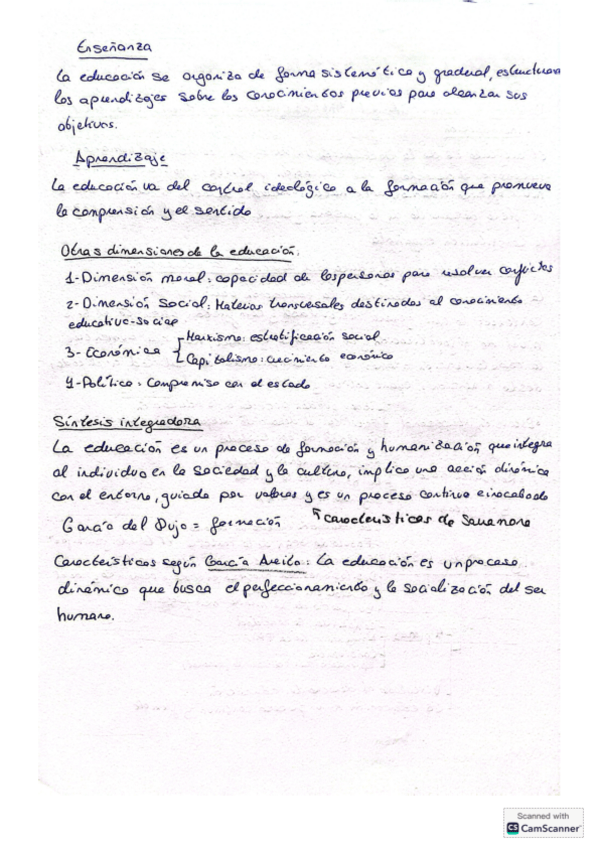 Enseñanza
La educación se organiza de forma sistemática y gradual, estructura
los aprendizajes sobre los conocimientos previos para alcanzar sus
objetivos.
Aprendizaje
La educación va del control ideológico a la formación que promueva
la comprensión y el sentido
Otras dimensiones de la educación.
1-Dimensión moral: capacidad de las personas para resolver conflictos
2-Dimensión Social: Materias transversales destinadas al conocimiento
educativo-social
3- Económica
Marxismo: estratificación social
Capitalismo: crecimiento económico
4-Político: Compromiso con el estado
Síntesis integradora
La educación es un proceso de formación y humanización que integra
al individuo en la sociedad y la cultura, implica una acción dinámica
con el entorno, guiada por valores y es un proceso continuo e inacabado
García del Dujo = formación
características de Sanavore
Características según García Aretio: La educación es un proceso
dinámico que busca el perfeccionamiento y la socialización del ser
humano.
Scanned with
CS CamScanner